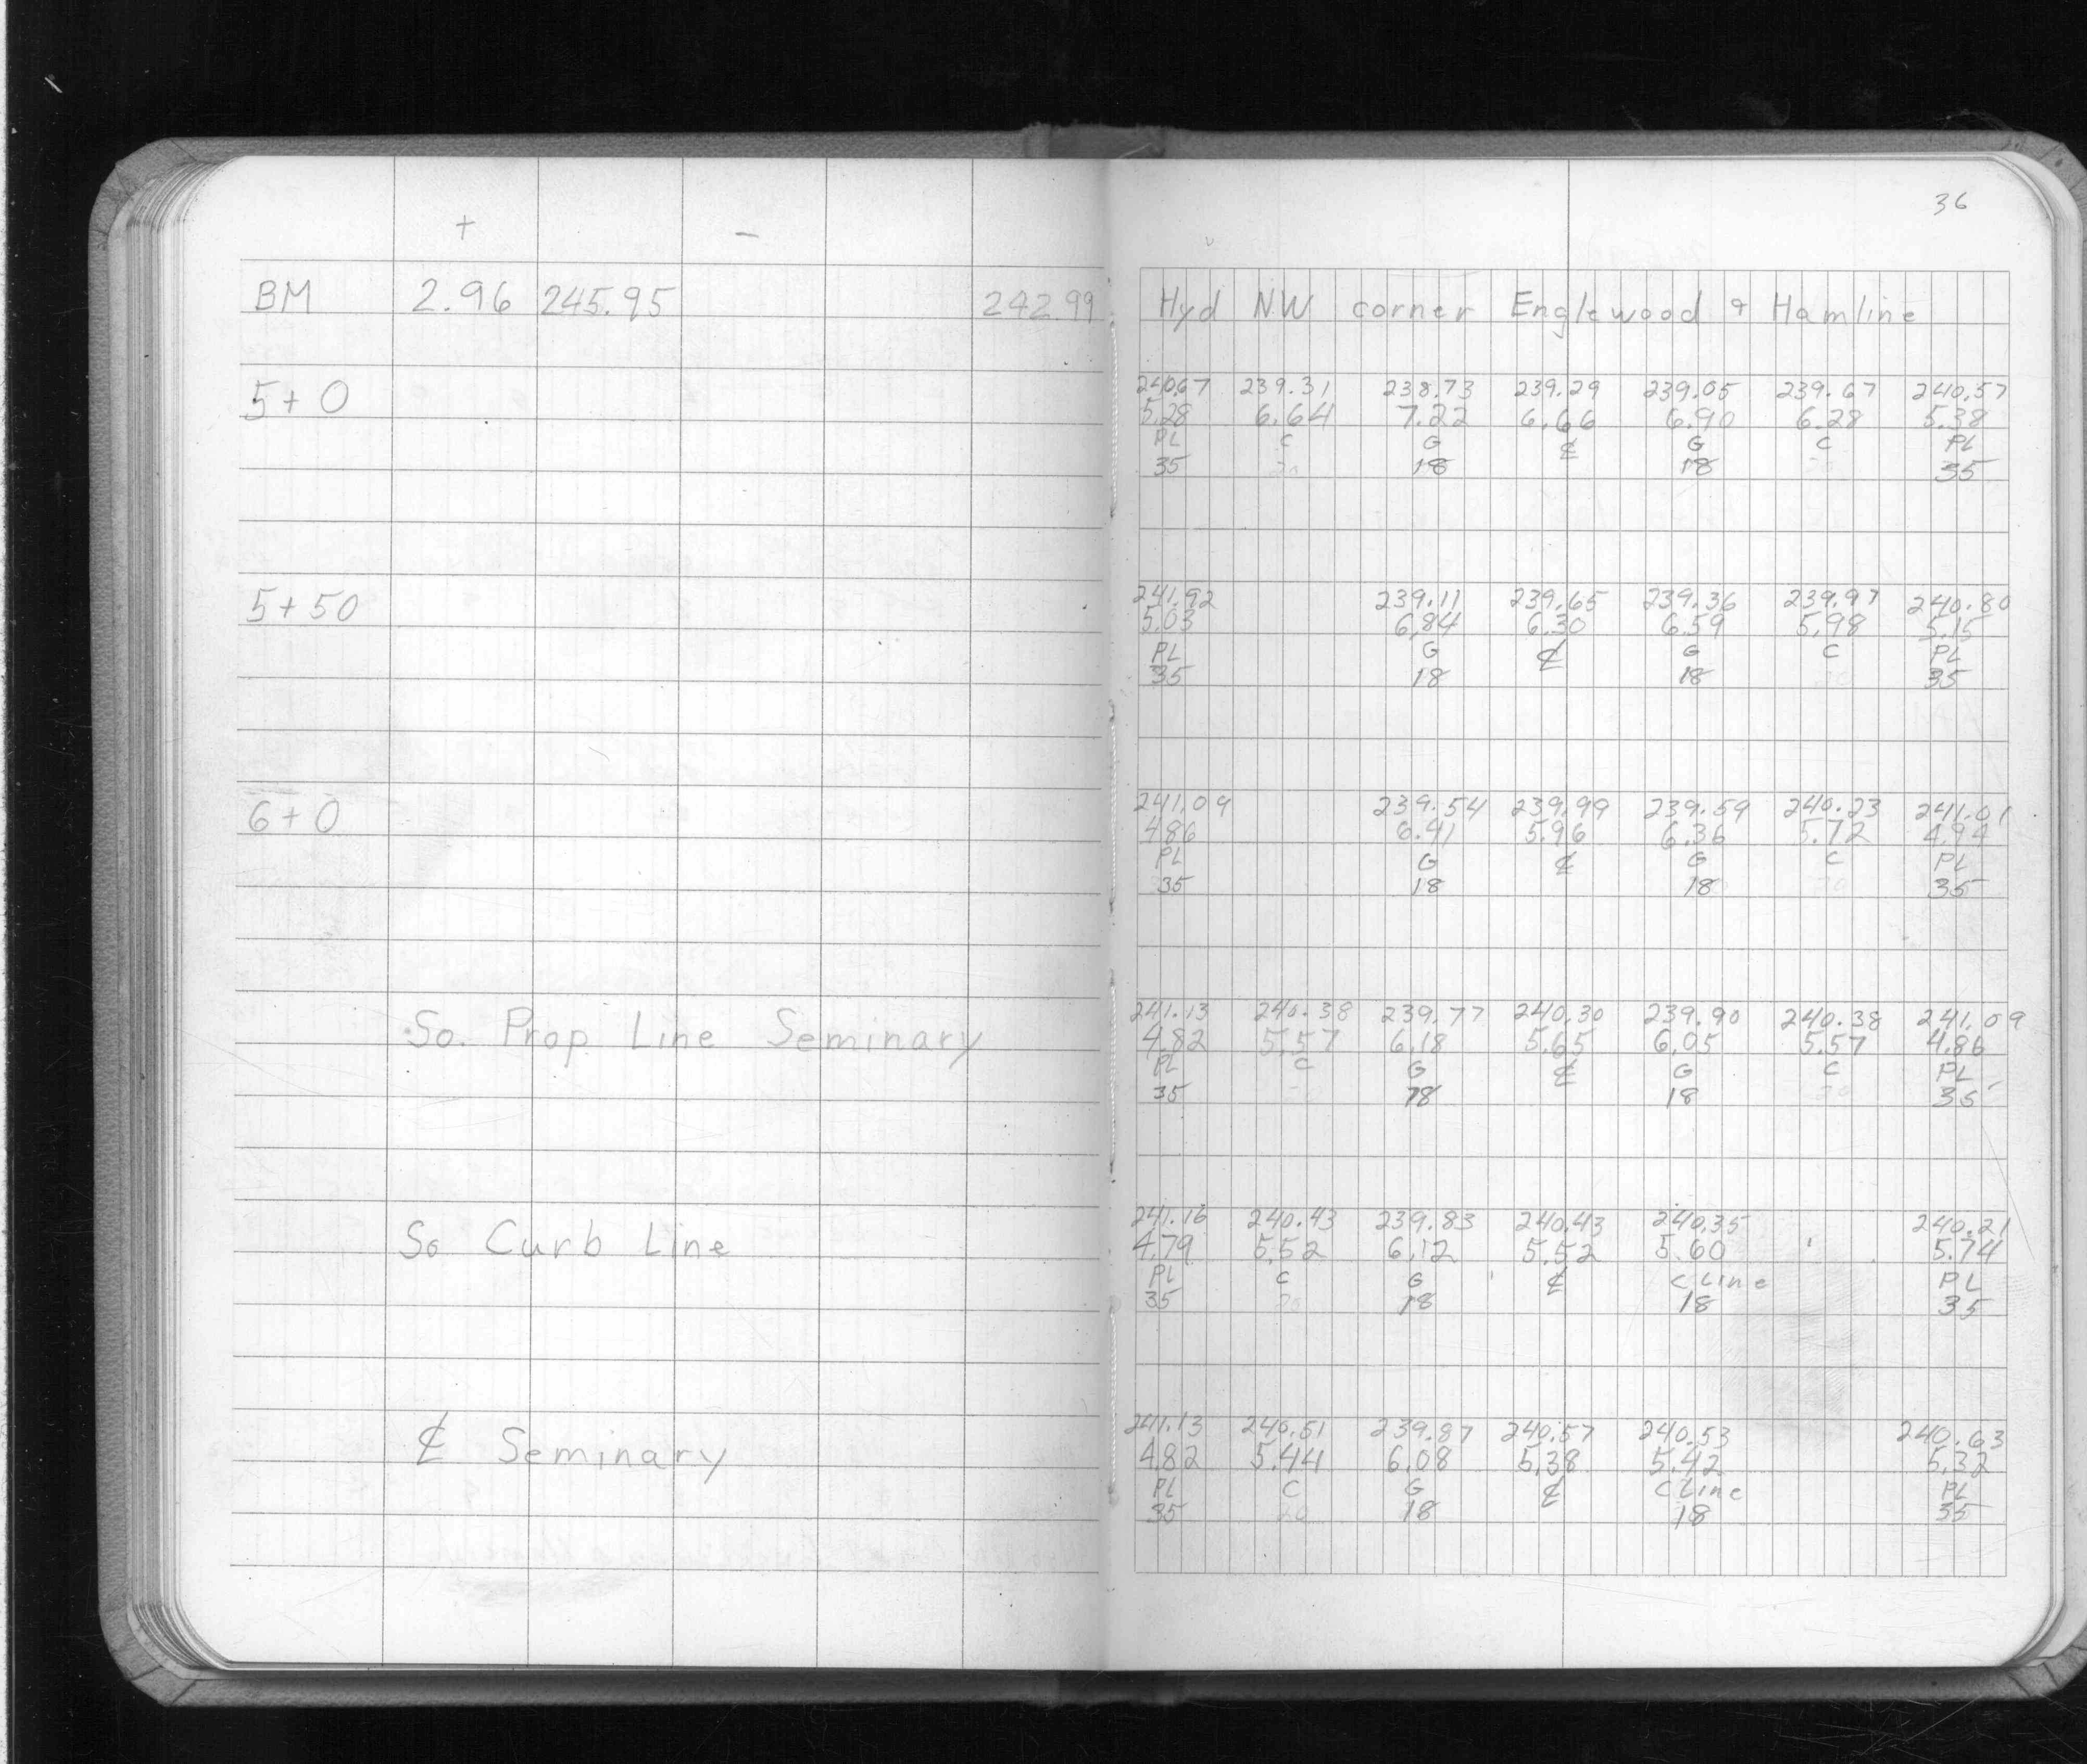 36
+ -
BM 2.96 245.95 242.99 Hyd NW corner Englewood & Hamline
5+0
240.67 239.31 238.73 239.29 239.05 239.67 240.57
5.28 6.64 7.22 6.66 6.90 6.28 5.38
PL C G ₵ G C PL
35 20 18 18 35
5+50
241.92 239.11 239.65 239.36 239.97 240.80
5.03 6.84 6.30 6.59 5.98 5.15
PL G ₵ G C PL
35 18 18 20 35
6+0
241.09 239.54 239.99 239.59 240.23 241.01
4.86 6.41 5.96 6.36 5.72 4.94
PL G ₵ G C PL
35 18 18 20 35
So. Prop Line Seminary
241.13 240.38 239.77 240.30 239.90 240.38 241.09
4.82 5.57 6.18 5.65 6.05 5.57 4.86
PL C G ₵ G C PL
35 20 18 18 20 35
So Curb Line
241.16 240.43 239.83 240.43 240.35 240.21
4.79 5.52 6.12 5.52 5.60 5.74
PL C G ₵ C Line PL
35 20 18 18 35
₵ Seminary
241.13 240.51 239.87 240.57 240.53 240.63
4.82 5.44 6.08 5.38 5.42 5.32
PL C G ₵ C Line PL
35 20 18 18 35